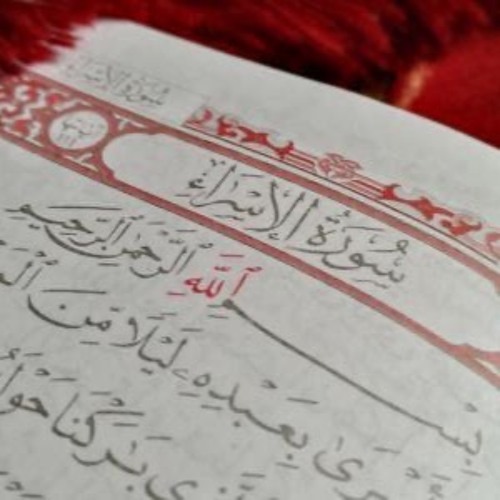 سُورَةُ الإِسْرَاءِ
سُورَةُ الإِسْرَاءِ
بِسْمِ ٱللَّهِ ٱلرَّحْمَٰنِ ٱلرَّحِيمِ
بِعَبْدِهِۦ لَيْلًا مِّنَ
بَٰرَكْنَا